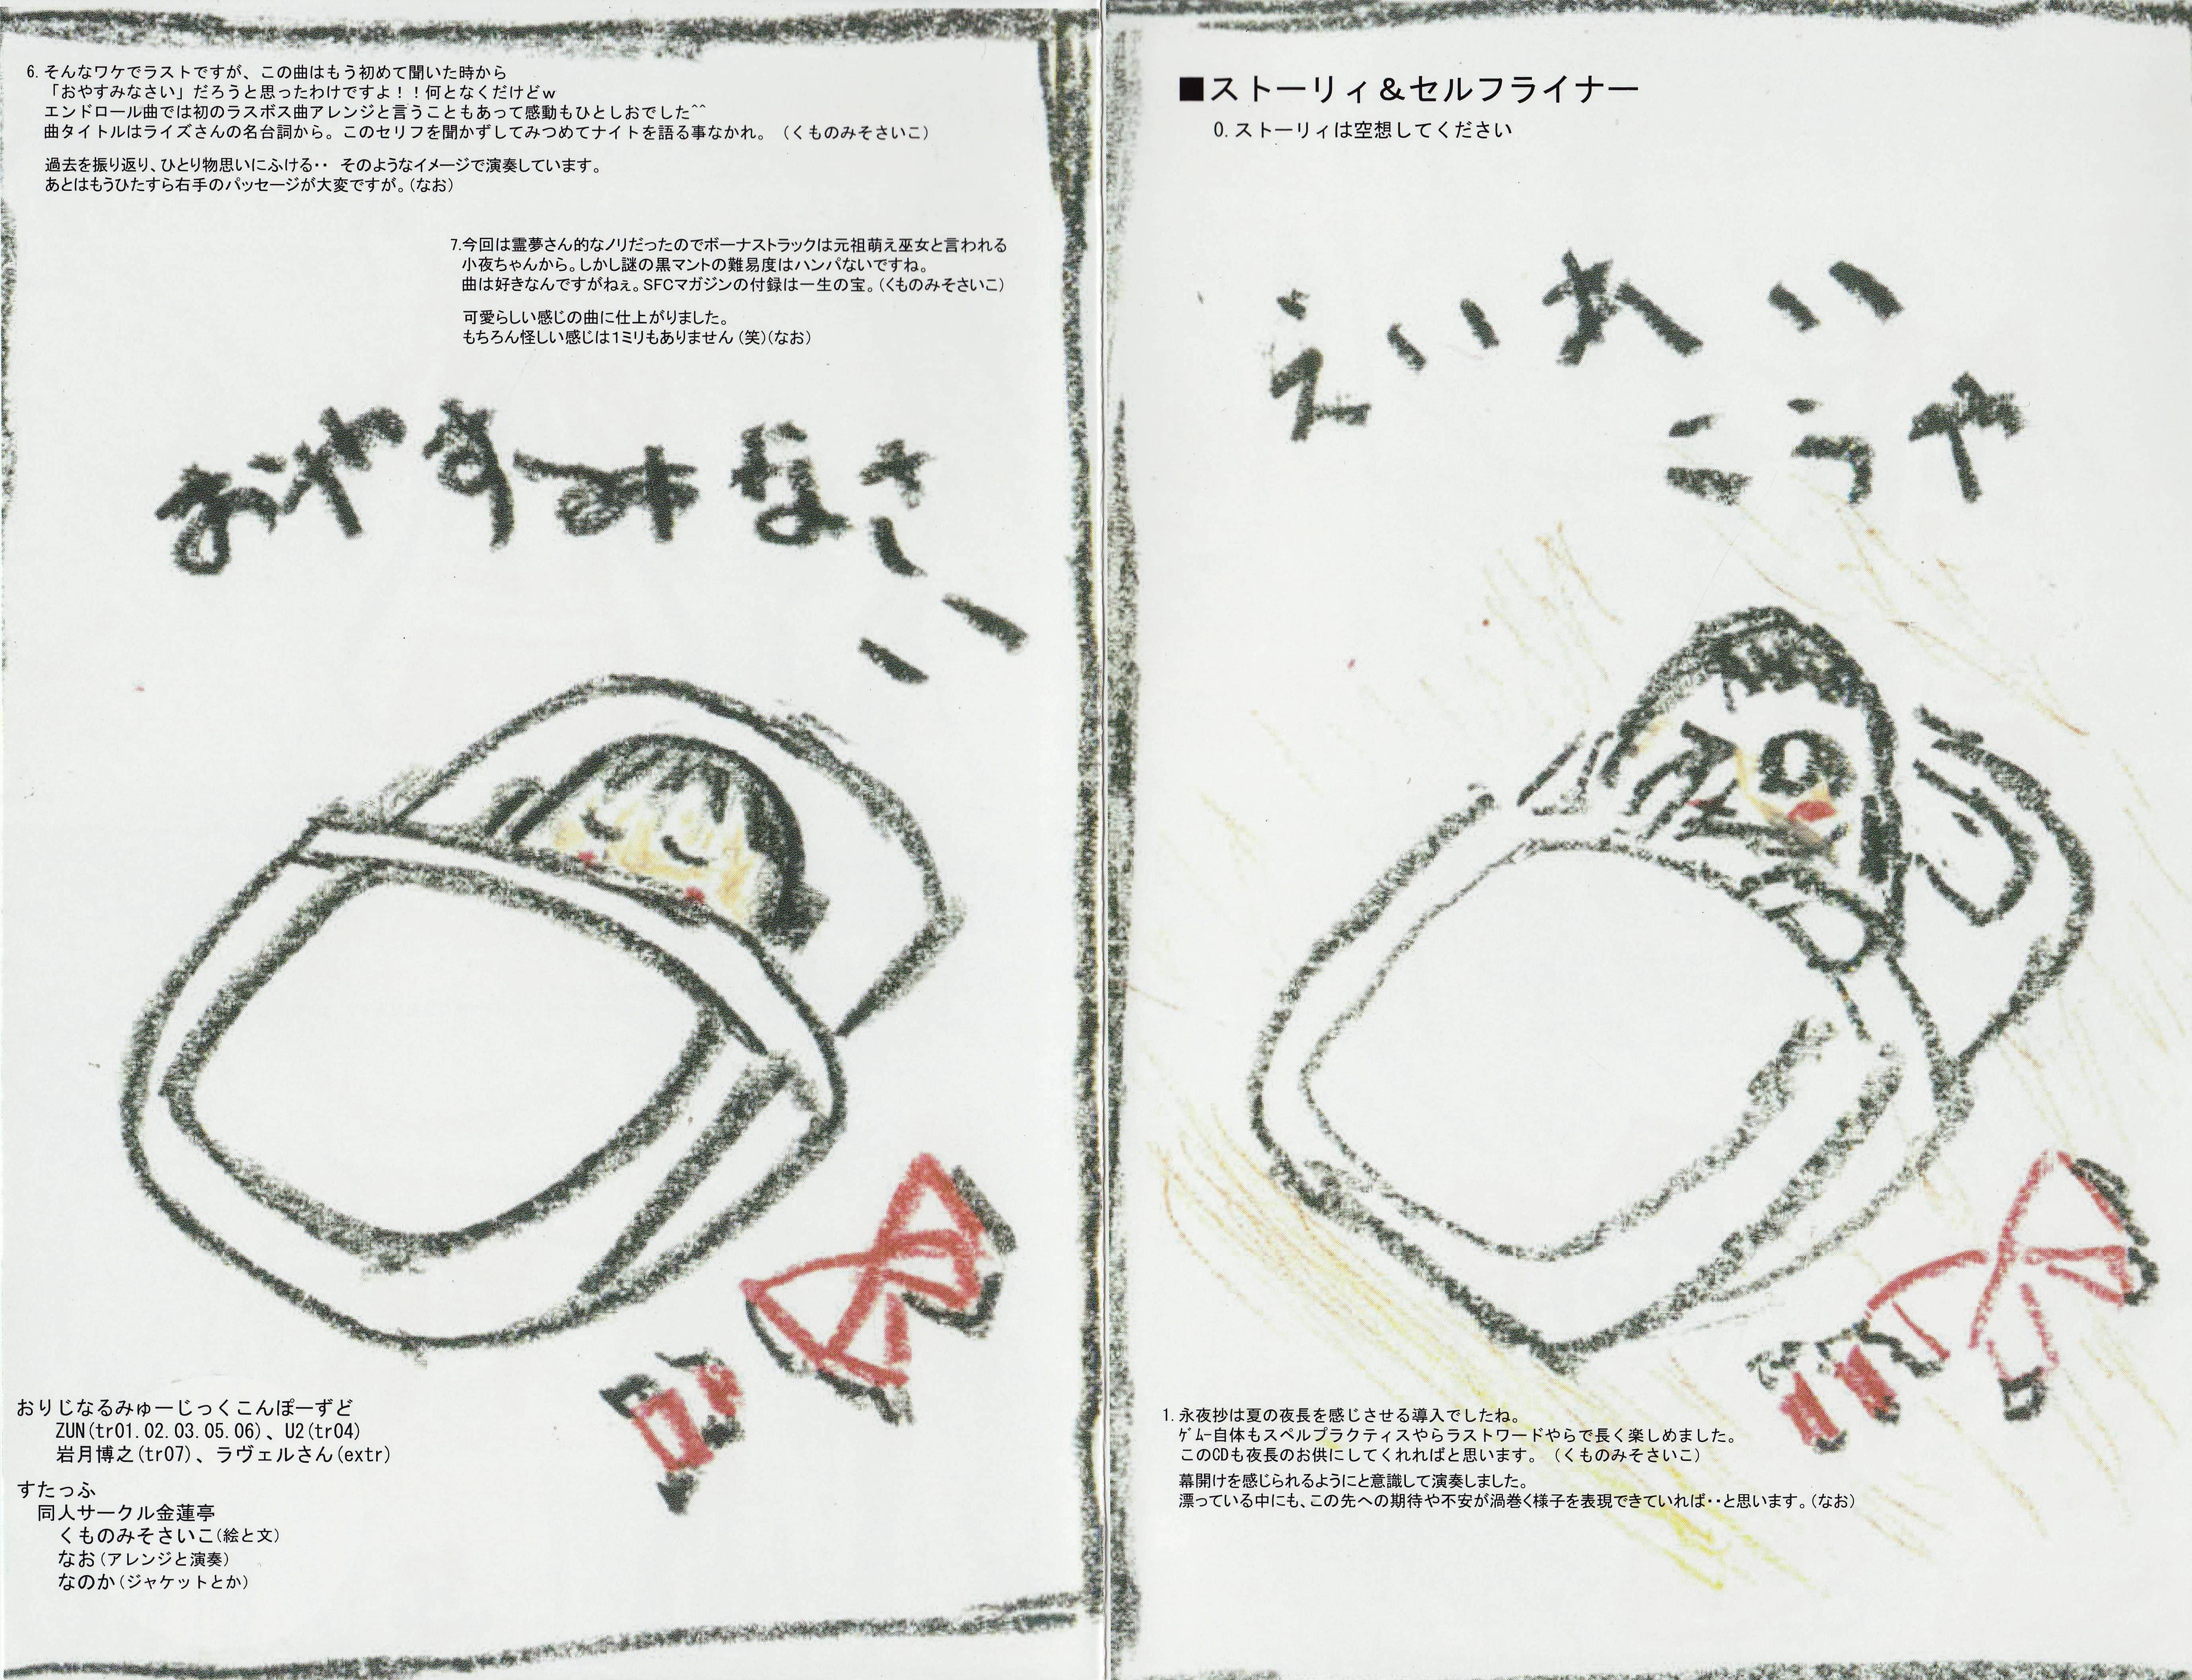 6. そんなワケでラストですが、この曲はもう初めて聞いた時から
「おやすみなさい」だろうと思ったわけですよ！！何となくだけどｗ
エンドロール曲では初のラスボス曲アレンジと言うこともあって感動もひとしおでした^^
曲タイトルはライズさんの名台詞から。このセリフを聞かずしてみつめてナイトを語る事なかれ。（くものみそさいこ）
過去を振り返り、ひとり物思いにふける‥ そのようなイメージで演奏しています。
あとはもうひたすら右手のパッセージが大変ですが。(なお)
7. 今回は霊夢さん的なノリだったのでボーナストラックは元祖萌え巫女と言われる
小夜ちゃんから。しかし謎の黒マントの難易度はハンパないですね。
曲は好きなんですがねぇ。SFCマガジンの付録は一生の宝。(くものみそさいこ)
可愛らしい感じの曲に仕上がりました。
もちろん怪しい感じは1ミリもありません(笑)(なお)
おやすみなさい
おりじなるみゅーじっくこんぽーずど
ZUN(tr01.02.03.05.06)、U2(tr04)
岩月博之(tr07)、ラヴェルさん(extr)
すたっふ
同人サークル金蓮亭
くものみそさいこ(絵と文)
なお(アレンジと演奏)
なのか(ジャケットとか)
■ストーリィ＆セルフライナー
0. ストーリィは空想してください
えいれい
こうや
1. 永夜抄は夏の夜長を感じさせる導入でしたね。
ｹﾞﾑｰ自体もスペルプラクティスやらラストワードやらで長く楽しめました。
このCDも夜長のお供にしてくれればと思います。（くものみそさいこ）
幕開けを感じられるようにと意識して演奏しました。
漂っている中にも、この先への期待や不安が渦巻く様子を表現できていれば‥と思います。(なお)